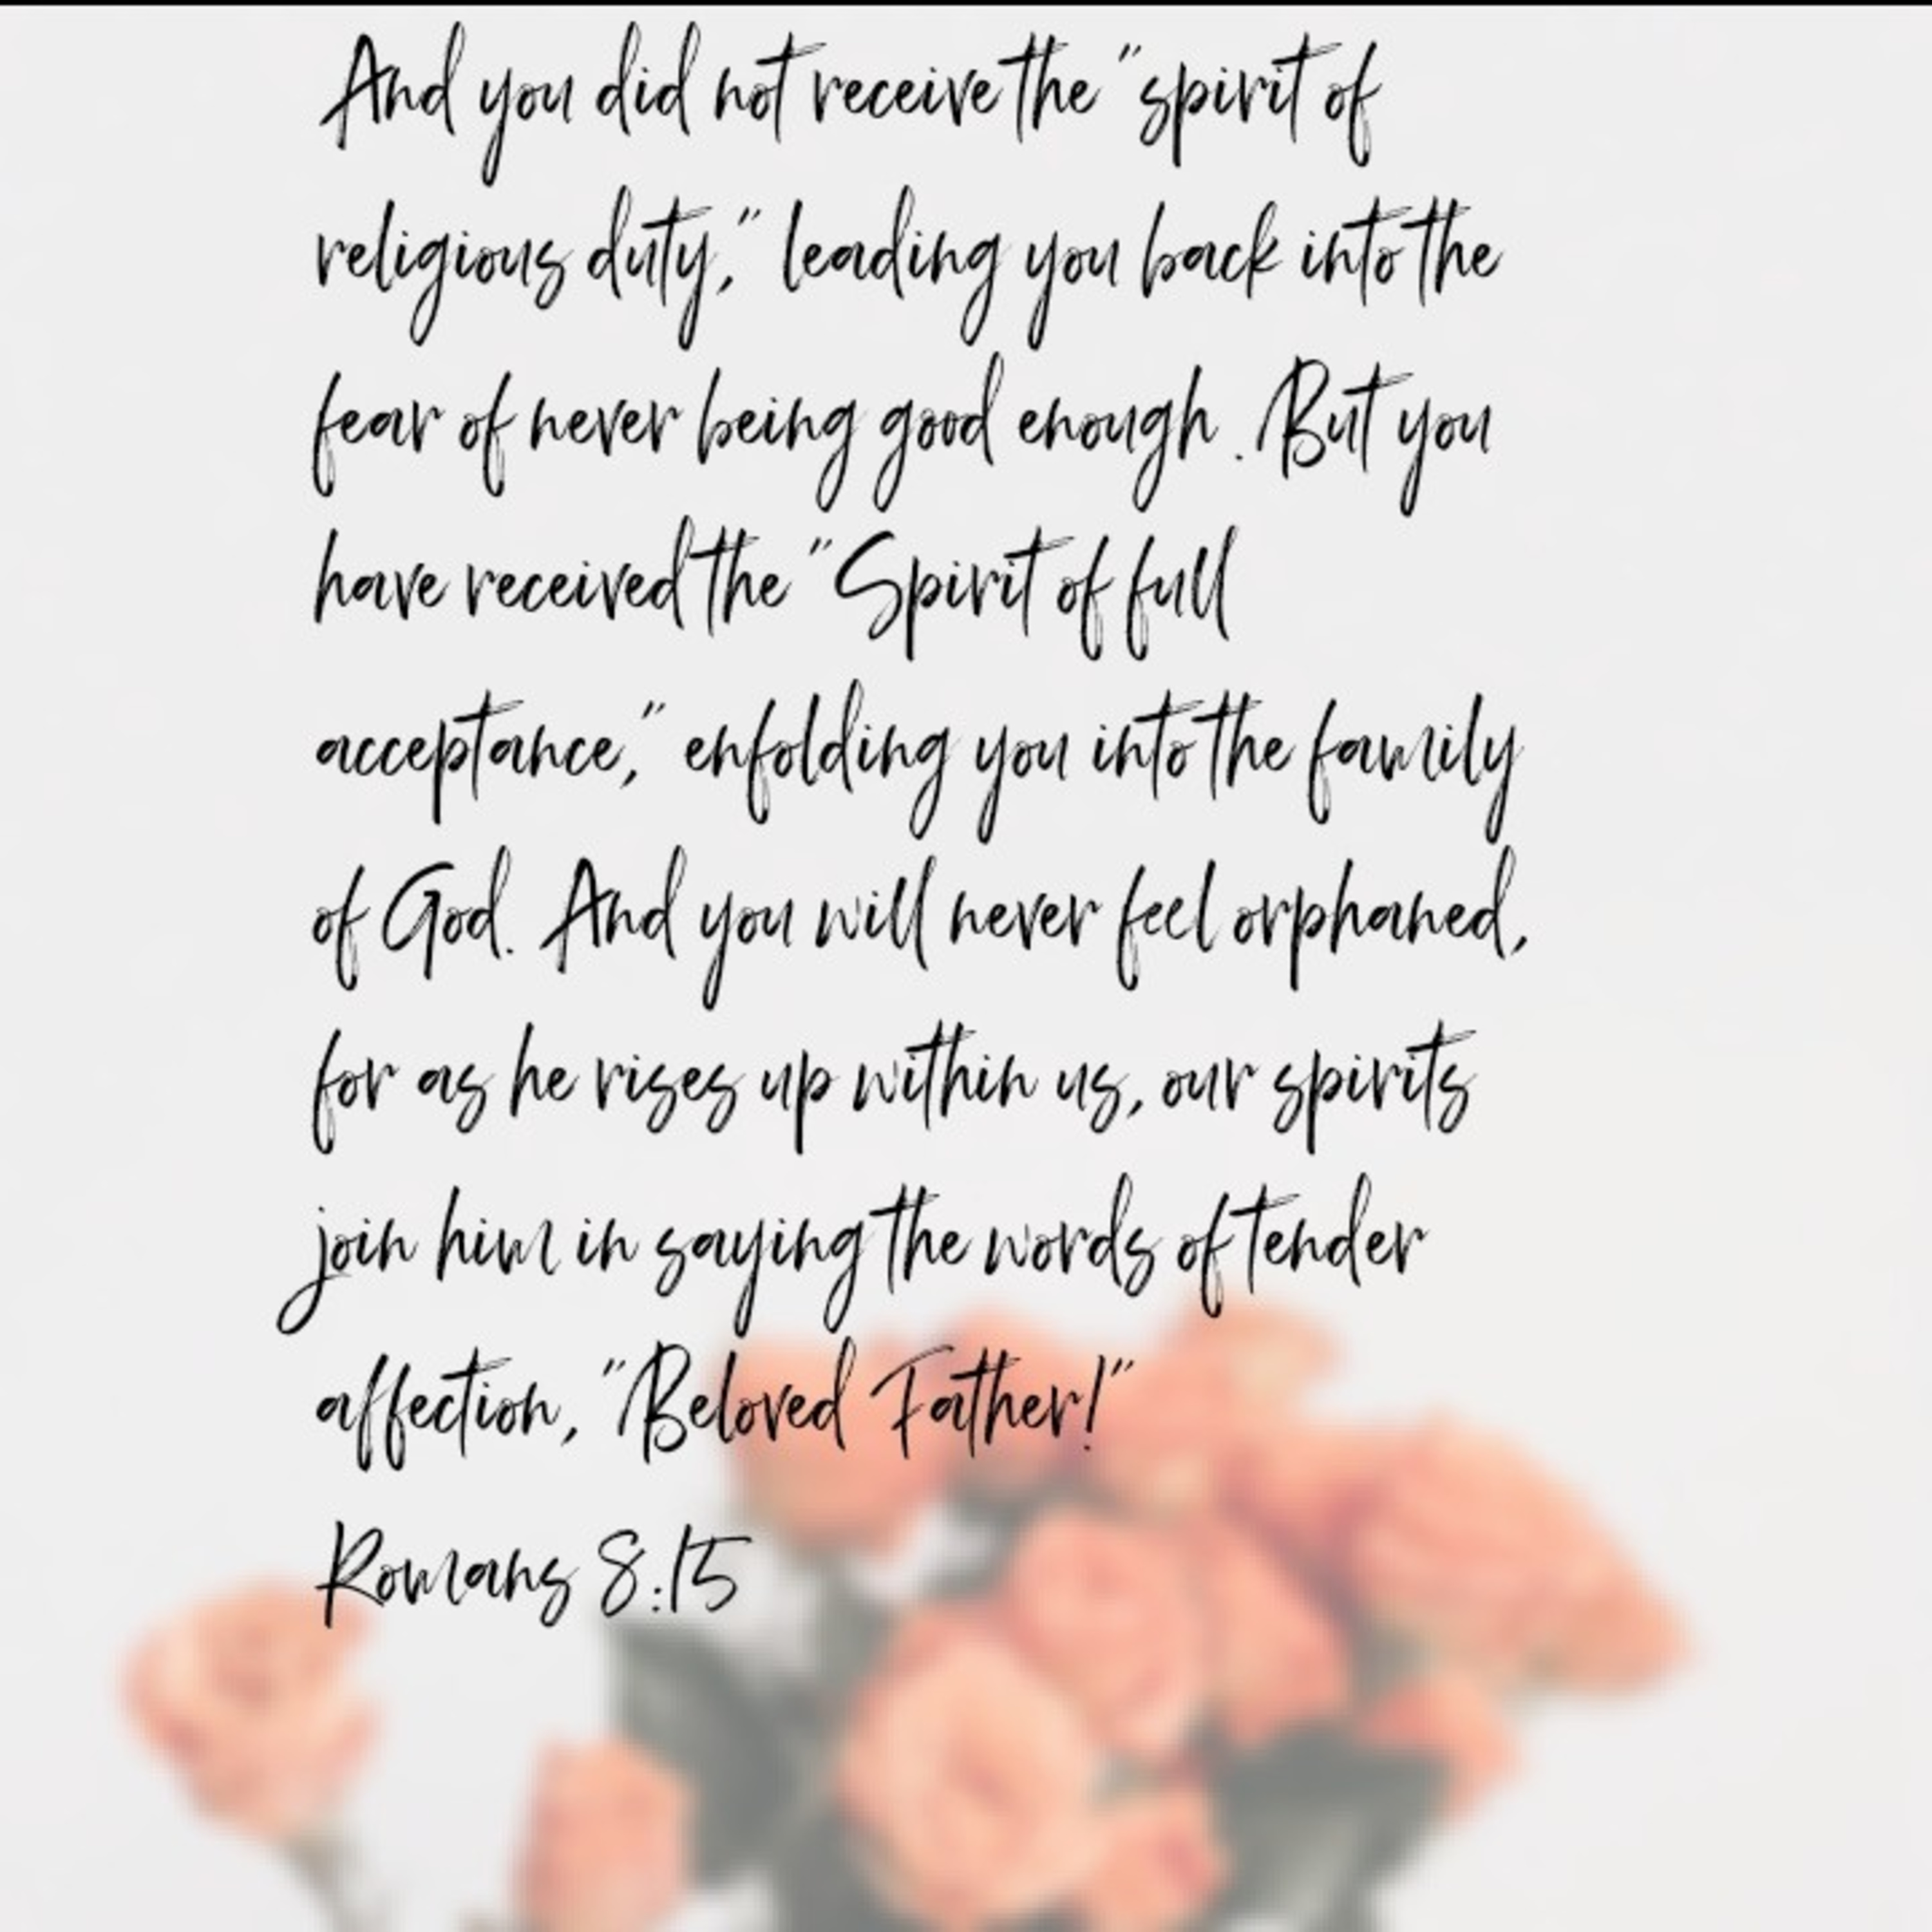 And you did not receive the "spirit of
religious duty," leading you back into the
fear of never being good enough. But you
have received the "Spirit of full
acceptance," enfolding you into the family
of God. And you will never feel orphaned,
for as he rises up within us, our spirits
join him in saying the words of tender
affection, "Beloved Father!"
Romans 8:15